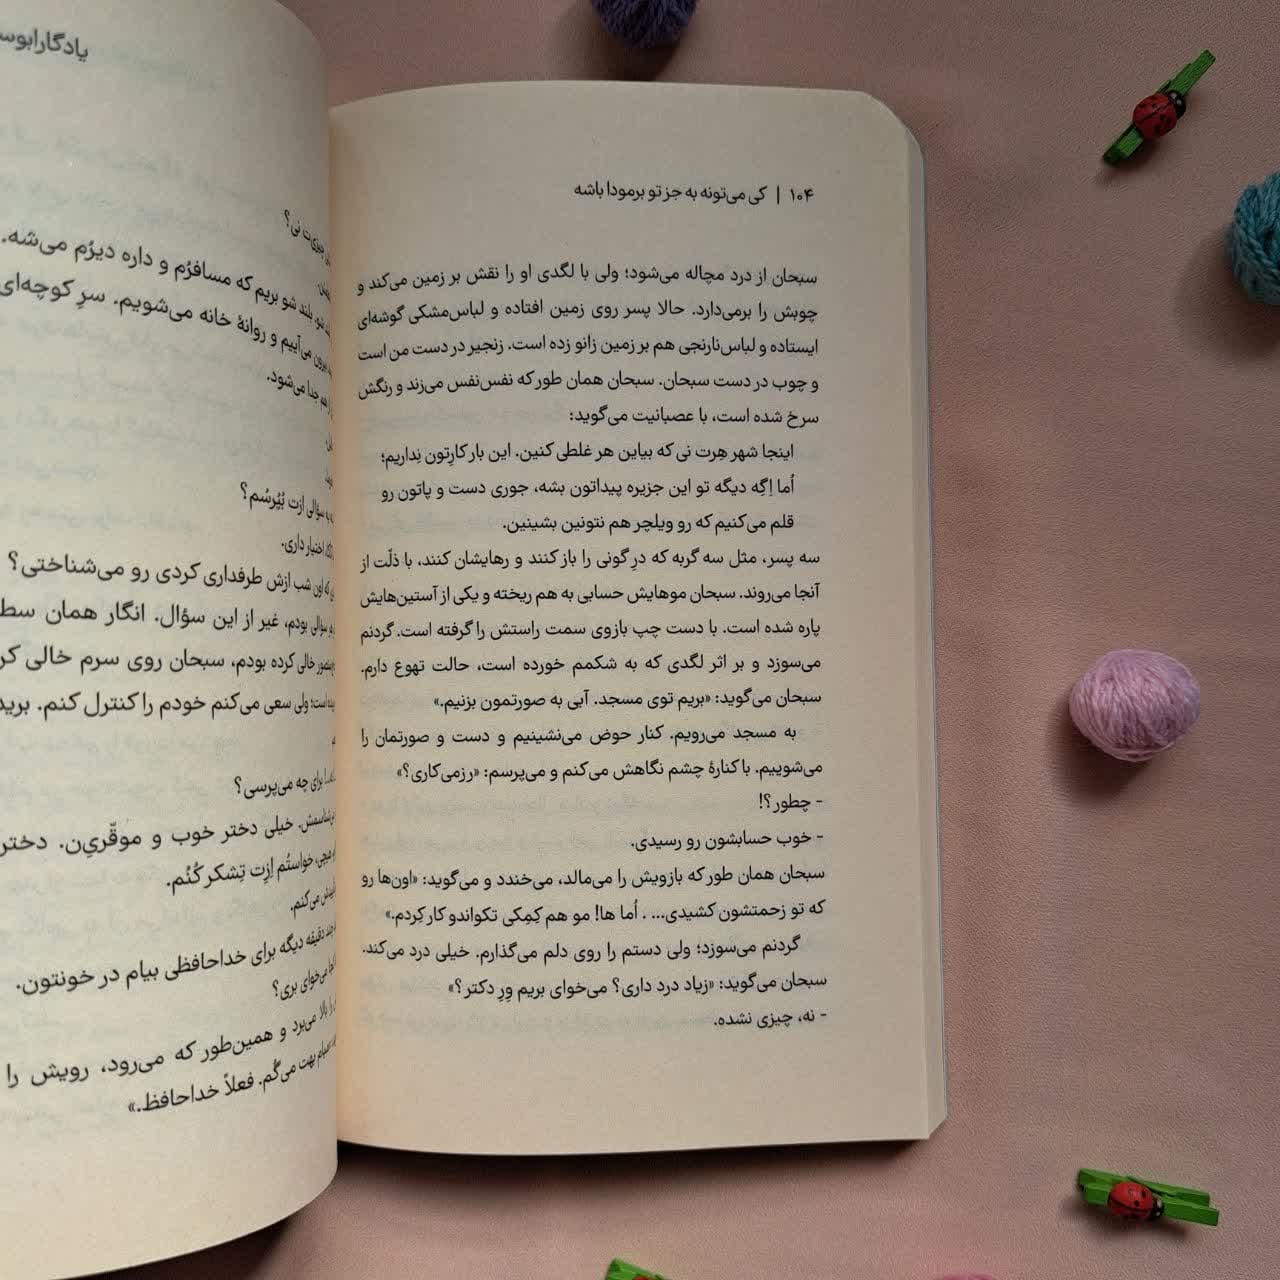 ۱۰۴ | کی می‌تونه به جز تو برمودا باشه
سبحان از درد مچاله می‌شود؛ ولی با لگدی او را نقش بر زمین می‌کند و
چوبش را برمی‌دارد. حالا پسر روی زمین افتاده و لباس‌مشکی گوشه‌ای
ایستاده و لباس‌نارنجی هم بر زمین زانو زده است. زنجیر در دست من است
و چوب در دست سبحان. سبحان همان طور که نفس‌نفس می‌زند و رنگش
سرخ شده است، با عصبانیت می‌گوید:
اینجا شهر هِرت نی که بیاین هر غلطی کنین. این بار کارِتون نِداریم؛
اُما اِگِه دیگه تو این جزیره پیداتون بشه، جوری دست و پاتون رو
قلم می‌کنیم که رو ویلچر هم نتونین بشینین.
سه پسر، مثل سه گربه که درِ گونی را باز کنند و رهایشان کنند، با ذلّت از
آنجا می‌روند. سبحان موهایش حسابی به هم ریخته و یکی از آستین‌هایش
پاره شده است. با دست چپ بازوی سمت راستش را گرفته است. گردنم
می‌سوزد و بر اثر لگدی که به شکمم خورده است، حالت تهوع دارم.
سبحان می‌گوید: «بریم توی مسجد. آبی به صورتمون بزنیم.»
به مسجد می‌رویم. کنار حوض می‌نشینیم و دست و صورتمان را
می‌شوییم. با کنارهٔ چشم نگاهش می‌کنم و می‌پرسم: «رزمی‌کاری؟»
- چطور؟!
- خوب حسابشون رو رسیدی.
سبحان همان طور که بازویش را می‌مالد، می‌خندد و می‌گوید: «اون‌ها رو
که تو زحمتشون کشیدی... . اُما ها! مو هم کِمِکی تکواندو کار کِردم.»
گردنم می‌سوزد؛ ولی دستم را روی دلم می‌گذارم. خیلی درد می‌کند.
سبحان می‌گوید: «زیاد درد داری؟ می‌خوای بریم وِرِ دکتر؟»
- نه، چیزی نشده.
نی؟
شو. بلند شو بریم که مسافرُم و داره دیرُم می‌شه.
بیرون می‌آییم و روانهٔ خانه می‌شویم. سرِ کوچه‌ای
هم جدا می‌شود.
سؤالی ازت بُپُرسُم؟
اختیار داری.
که اون شب ازش طرفداری کردی رو می‌شناختی؟
سؤالی بودم، غیر از این سؤال. انگار همان سطل
خالی کرده بودم، سبحان روی سرم خالی
است؛ ولی سعی می‌کنم خودم را کنترل کنم.
برای چه می‌پرسی؟
خیلی دختر خوب و موقّری‌ن. دختر
خواستُم اِزِت تِشکر کُنُم.
می‌کنم.
چند دقیقه دیگه برای خداحافظی بیام در خونتون.
می‌خوای بری؟
بالا می‌برد و همین‌طور که می‌رود، رویش را
بهت می‌گُم. فعلاً خداحافظ.»